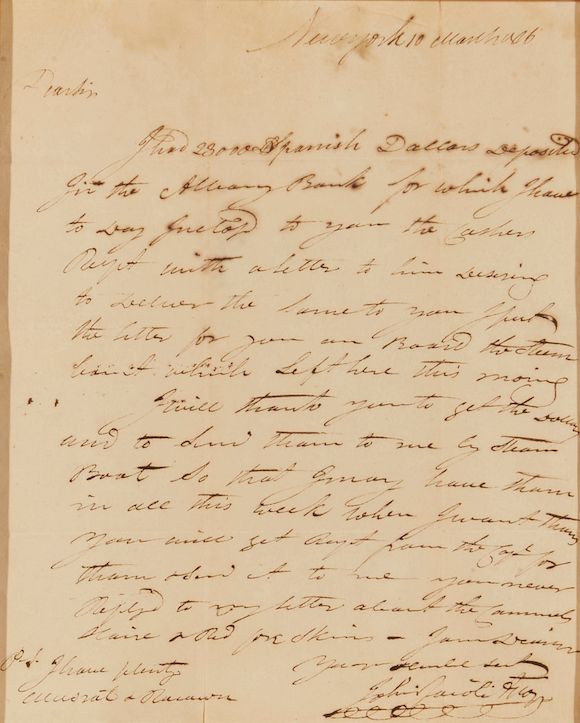 New york 10 March 1826
Dear Sir
I had 23000 Spanish Dollars Deposited
In the Albany Bank for which I have
to Day Inclosd to you the Cashers
Recpt with a letter to him Desiring
to Deliver the same to you I put
the letter for you on Board the Steem
boat which Left here this moring
I will thank you to get the Dollars
and to Send them to me by Steam
Boat So that I may have them
in all this week when I want them
you will get Recpt from the Capt for
them & Send it to me you never
Repleyd to my letter about the
Haire & Red fox Skins – I am Desirous
Your
P.S. I have plenty
Muscrat & Racoon